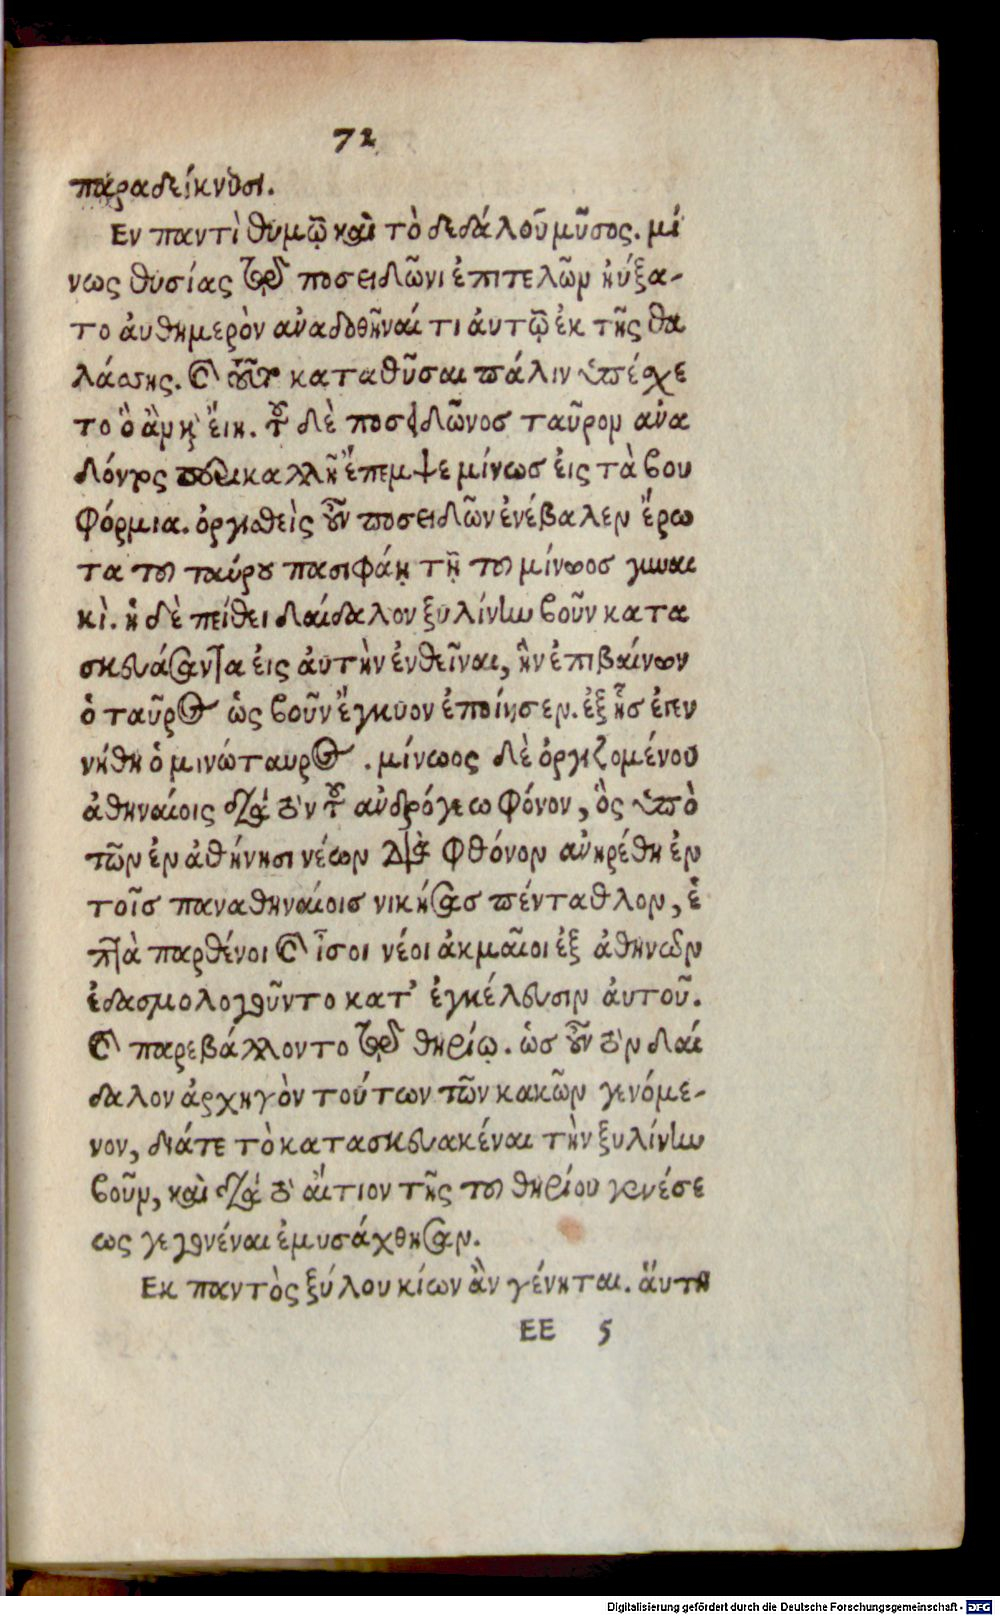 72
παραδείκνυσι.
Εν παντὶ θυμῷ καὶ τὸ δεδάλου μῦσος. μί
νως θυσίας τῷ ποσειδῶνι ἐπιτελῶν ηύξα-
το ἀυθημερὸν αναδοθῆναί τι ἀυτῷ ἐκ τῆς θα
λάσσης. καὶ τοῦτο καταθῦσαι πάλιν ὑπέσχε
το ὃ ἂν καὶ ἔιη. τοῦ δὲ ποσειδῶνος ταῦρον ανα
δόντος περικαλλῆ ἔπεμψε μίνωσ ἐις τὰ βου
φόρμια. ὀργισθεὶς οὖν ποσειδῶν ἐνέβαλεν ἔρω
τα του ταύρου πασιφάῃ τῇ του μίνωος γυναι
κὶ. ἡ δὲ πείθει δαίδαλον ξυλίνην βοῦν κατα
σκευάσαντα ἐις ἀυτὴν ἐνθεῖναι, ἣν ἐπιβαίνων
ὁ ταῦρος ὡς βοῦν ἔγκυον ἐποίησεν. ἐξ ἧσ ἐγεν
νήθη ὁ μινώταυρος. μίνωος δὲ ὀργιζομένου
ἀθηναίοις διὰ τὸν τοῦ ανδρόγεω φόνον, ὃς ὑπὸ
τῶν ἐν ἀθήνησι νέων διὰ φθόνον ανηρέθη ἐν
τοῖσ παναθηναίοισ νικήσασ πένταθλον, ἑ
πτὰ παρθένοι καὶ ἶσοι νέοι ἀκμαῖοι ἐξ ἀθηνῶν
ἐδασμολογοῦντο κατ᾽ ἐγκέλευσιν ἀυτοῦ.
καὶ παρεβάλλοντο τῷ θηρίῳ. ὡσ οὖν τὸν δαί
δαλον ἀρχηγὸν τούτων τῶν κακῶν γενόμε-
νον, διάτε τὸ κατασκευακέναι τὴν ξυλίνην
βοῦν, καὶ διὰ τὸ ἄιτιον τῆς του θηρίου γενέσε
ως γεγονέναι ἐμυσάχθησαν.
Εκ παντὸς ξύλου κίων ἂν γένηται. ἅυτη
EE 5
Digitalisierung gefördert durch die Deutsche Forschungsgemeinschaft - DFG